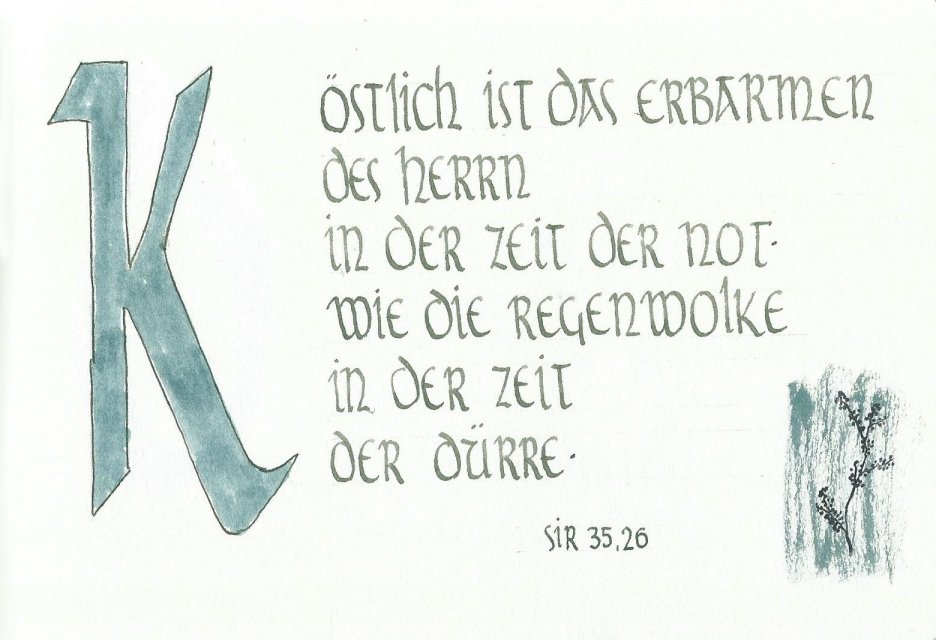 Köstlich ist das Erbarmen
des Herrn
in der Zeit der Not·
wie die Regenwolke
in der Zeit
der Dürre·
Sir 35,26